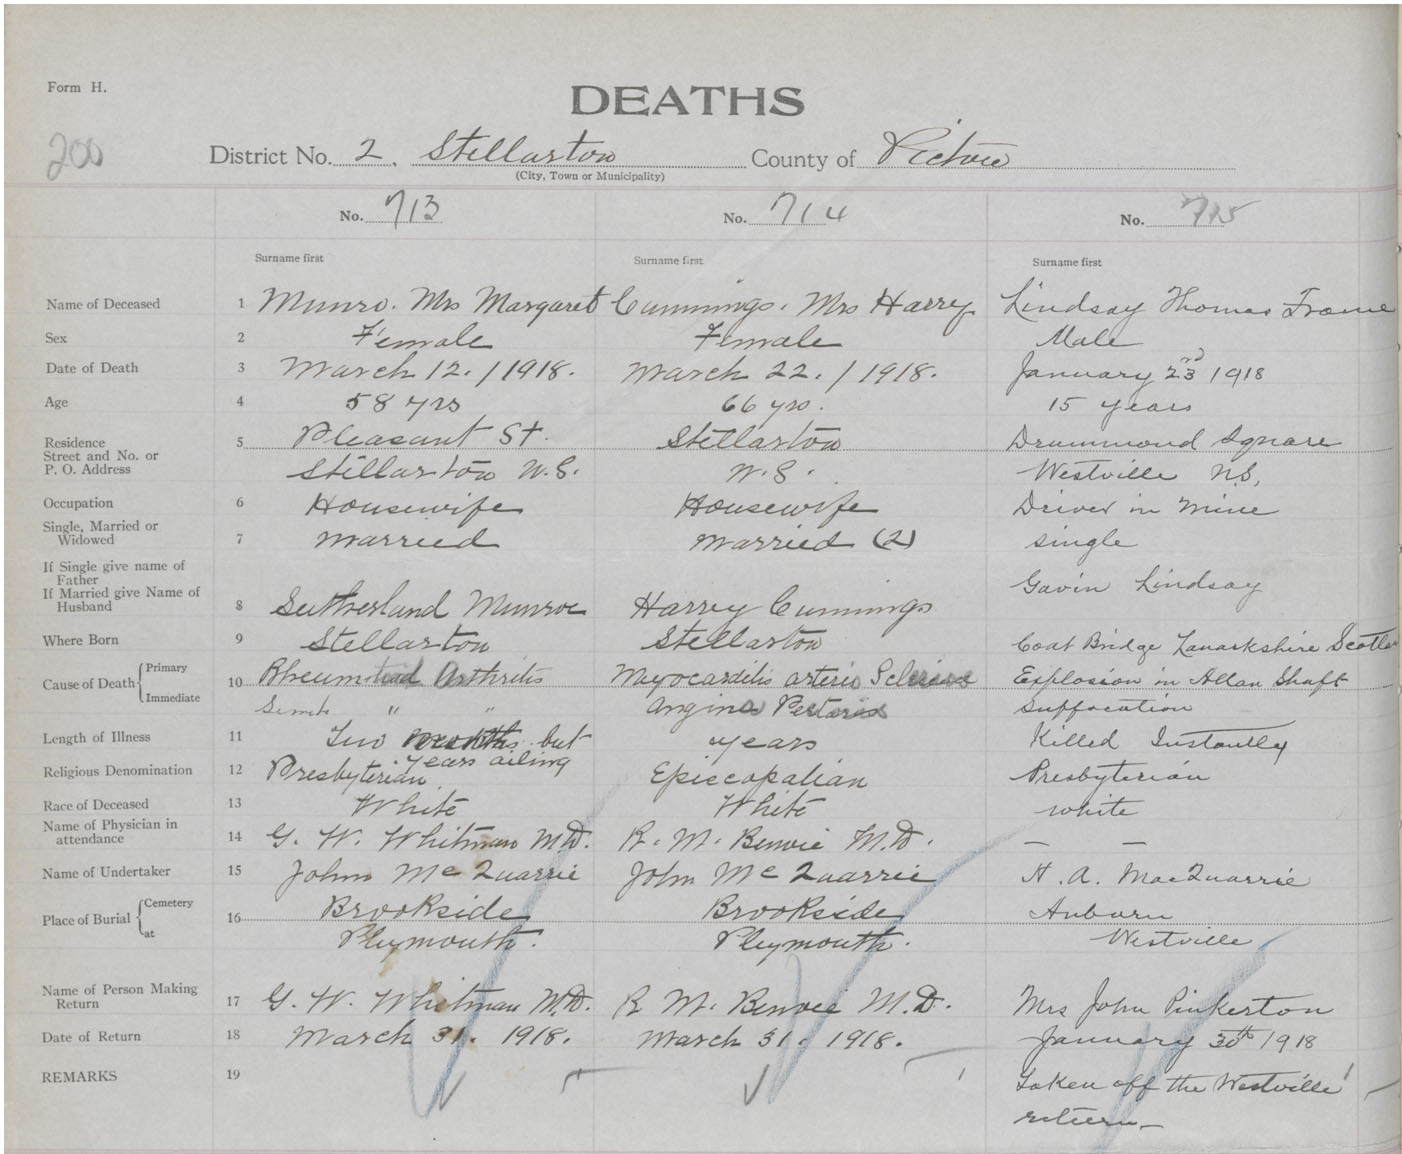 Form H.
DEATHS
200
District No. 2. Stellarton County of Pictou
(City, Town or Municipality)
No. 713 No. 714 No. 715
Surname first Surname first Surname first
Name of Deceased 1 Munro. Mrs Margaret Cummings. Mrs Harry Lindsay Thomas Frame
Sex 2 Female Female Male
Date of Death 3 March 12./1918. March 22./1918. January 23rd 1918
Age 4 58 yrs 66 yrs. 15 years
Residence
Street and No. or 5 Pleasant St. Stellarton Drummond Square
P. O. Address Stellarton N.S. N.S. Westville N.S,
Occupation 6 Housewife Housewife Driver in Mine
Single, Married or
Widowed 7 Married Married (2) single
If Single give name of
Father Gavin Lindsay
If Married give Name of
Husband 8 Sutherland Munroe Harry Cummings
Where Born 9 Stellarton Stellarton Coat Bridge Lanarkshire Scotla
Cause of Death { Primary 10 Rheumatiod Arthritis Myocarditis arterio Sclerosis Explosion in Allan Shaft
Immediate " " Angina Pectoris Suffocation
Length of Illness 11 Two months but years Killed Instantly
years ailing
Religious Denomination 12 Presbyterian Episcopalian Presbyterian
Race of Deceased 13 White White white
Name of Physician in
attendance 14 G. W. Whitman M.D. R. M. Benvie M.D. — —
Name of Undertaker 15 John McQuarrie John McQuarrie H. A. MacQuarrie
Place of Burial { Cemetery 16 Brookside Brookside Auburn
at Plymouth. Plymouth. Westville
Name of Person Making
Return 17 G. W. Whitman M.D. R M. Benvie M.D. Mrs John Pinkerton
Date of Return 18 March 31. 1918. March 31. 1918. January 30th 1918
REMARKS 19 Taken off the Westville
return—